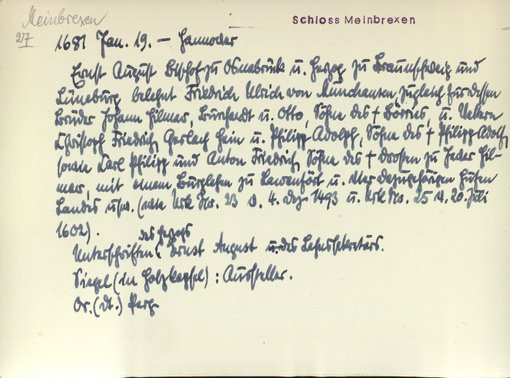 Meinbrexen
27
Schloss Meinbrexen
1681 Jan. 19. — Hannover
Ernst August Bischof zu Osnabrück u. Herzog zu Braunschweig und
Lüneburg belehnt Friedrich Ulrich von Münchausen zugleich für dessen
Brüder Johann Hilmer, Burchardt u. Otto, Söhne des † Börries, u. Vettern
Christoph Friedrich Gerlach Hein u. Philipp Adolph, Söhne des † Philipp Adolf,
sowie Carl Philipp und Anton Friedrich, Söhne des † Drosten zu
mar, mit einem Burglehen zu Lawenförde u. 4ter dazugehörigen Hufen
Landes usw. (wie Urk. Nr. 23 v. 4. Dez. 1493 u. Urk. Nr. 25 v. 20. Juli
1602).
des Herzogs
Unterschriften Ernst August u. des Lehnssekretärs.
Siegel (in Holzkapsel): Aussteller.
Or. (dt.) Perg.